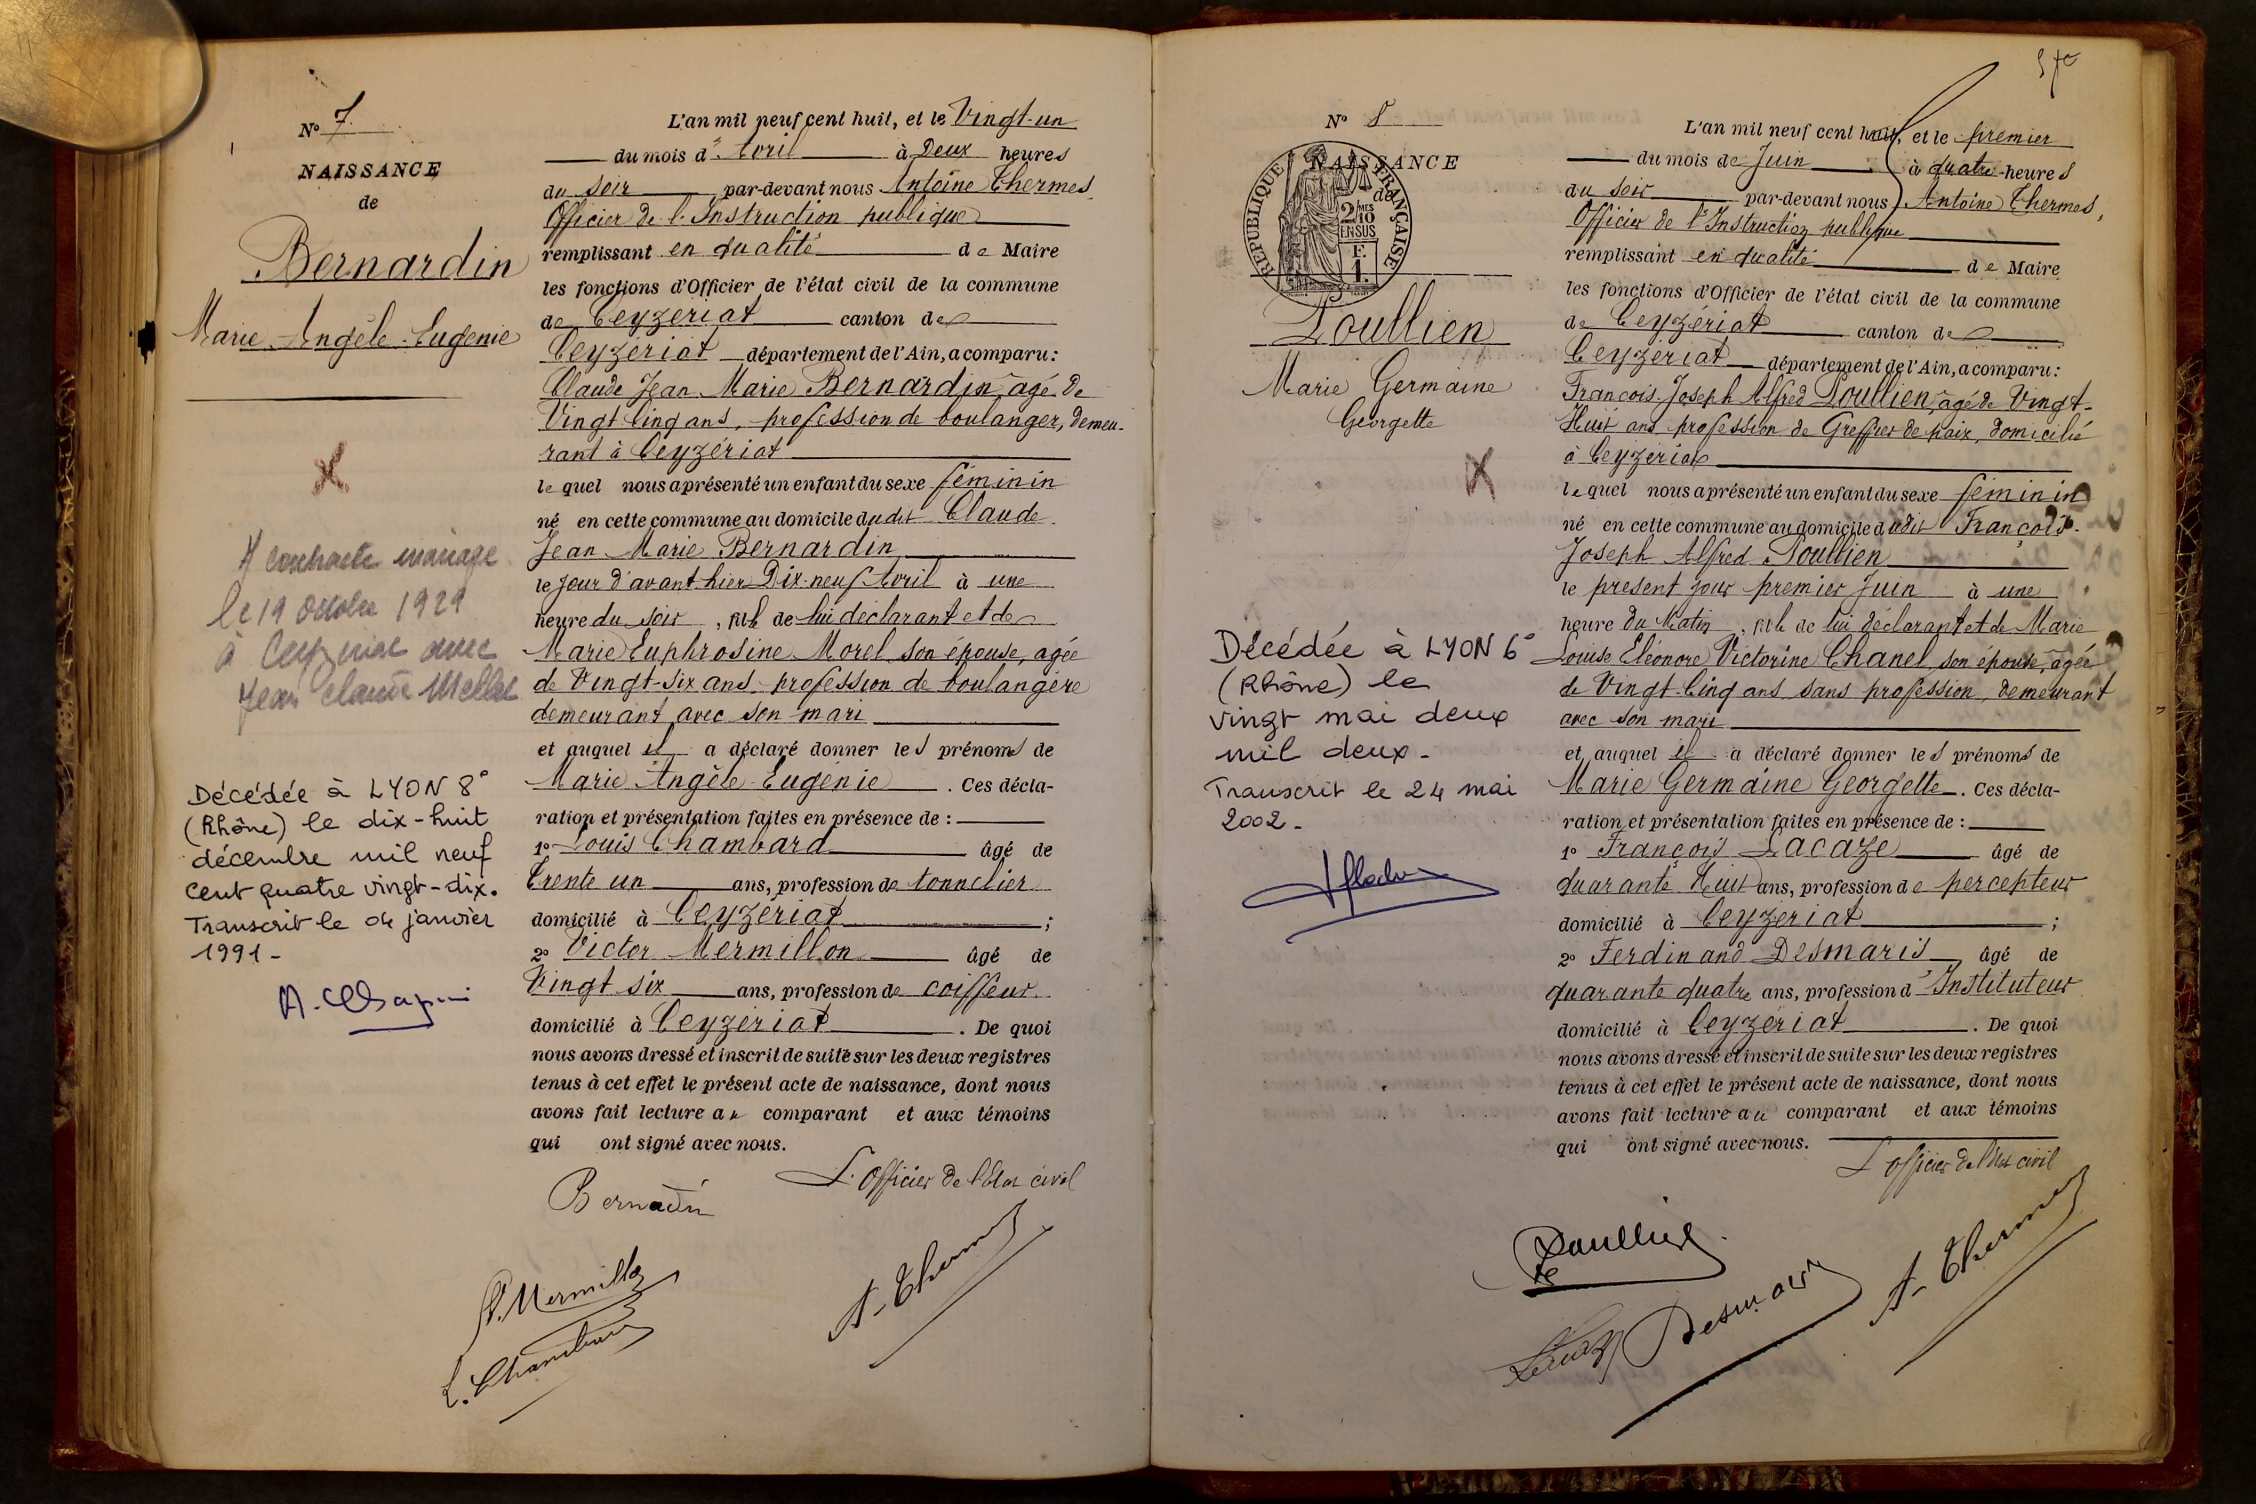 N° 7
NAISSANCE
de
Bernardin
Marie Angèle Eugenie
A contracté mariage
le 19 octobre 1929
à Ceyzériat avec
Jean Claude
Décédée à LYON 8°
(Rhône) le dix-huit
décembre mil neuf
cent quatre vingt-dix.
Transcrit le 04 janvier
1991-
L'an mil neuf cent huit, et le Vingt-un
du mois d'Avril à Deux heures
du soir par-devant nous Antoine Thermes,
Officier de l'Instruction publique
remplissant en qualité de Maire
les fonctions d'Officier de l'état civil de la commune
de Ceyzériat canton de
Ceyzériat département de l'Ain, a comparu :
Claude Jean Marie Bernardin, agé de
Vingt Cinq ans, profession de boulanger, demeu-
rant à Ceyzériat
le quel nous a présenté un enfant du sexe féminin
né en cette commune au domicile dudit Claude
Jean Marie Bernardin
le jour d'avant hier Dix-neuf Avril à une
heure du soir, fille de lui déclarant et de
Marie Euphrosine Morel son épouse, agée
de Vingt-six ans, profession de boulangère
demeurant avec son mari
et auquel il a déclaré donner les prénoms de
Marie Angèle Eugénie. Ces décla-
ration et présentation faites en présence de :
1° Louis Chambard âgé de
Trente un ans, profession de tonnelier
domicilié à Ceyzériat ;
2° Victor Mermillon âgé de
Vingt six ans, profession de coiffeur
domicilié à Ceyzériat. De quoi
nous avons dressé et inscrit de suite sur les deux registres
tenus à cet effet le présent acte de naissance, dont nous
avons fait lecture au comparant et aux témoins
qui ont signé avec nous.
L'officier de l'Etat civil
Bernardin
V. Mermillon
L. Chambard
A. Thermes
N° 8
NAISSANCE
de
REPUBLIQUE FRANÇAISE
2/10 MES
EN SUS
F.
1.
Poullien
Marie Germaine
Georgette
Décédée à LYON 6°
(Rhône) le
vingt mai deux
mil deux-
Transcrit le 24 mai
2002-
L'an mil neuf cent huit, et le premier
du mois de Juin à quatre heures
du soir par-devant nous Antoine Thermes,
Officier de l'Instruction publique
remplissant en qualité de Maire
les fonctions d'Officier de l'état civil de la commune
de Ceyzériat canton de
Ceyzériat département de l'Ain, a comparu :
François Joseph Alfred Poullien, agé de Vingt-
Huit ans profession de Greffier de paix, domicilié
à Ceyzériat
le quel nous a présenté un enfant du sexe féminin
né en cette commune au domicile dudit François
Joseph Alfred Poullien
le present jour premier Juin à une
heure du Matin, fille de lui déclarant et de Marie
Louise Eléonore Victorine Chanel son épouse, agée
de Vingt-Cinq ans sans profession, demeurant
avec son mari
et auquel il a déclaré donner les prénoms de
Marie Germaine Georgette. Ces décla-
ration et présentation faites en présence de :
1° François Lacaze âgé de
quarante Huit ans, profession de percepteur
domicilié à Ceyzériat ;
2° Ferdinand Desmaris âgé de
quarante quatre ans, profession d'Instituteur
domicilié à Ceyzériat. De quoi
nous avons dressé et inscrit de suite sur les deux registres
tenus à cet effet le présent acte de naissance, dont nous
avons fait lecture au comparant et aux témoins
qui ont signé avec nous.
L'officier de l'Etat civil
Poullien
Lacaze
Desmaris
A. Thermes